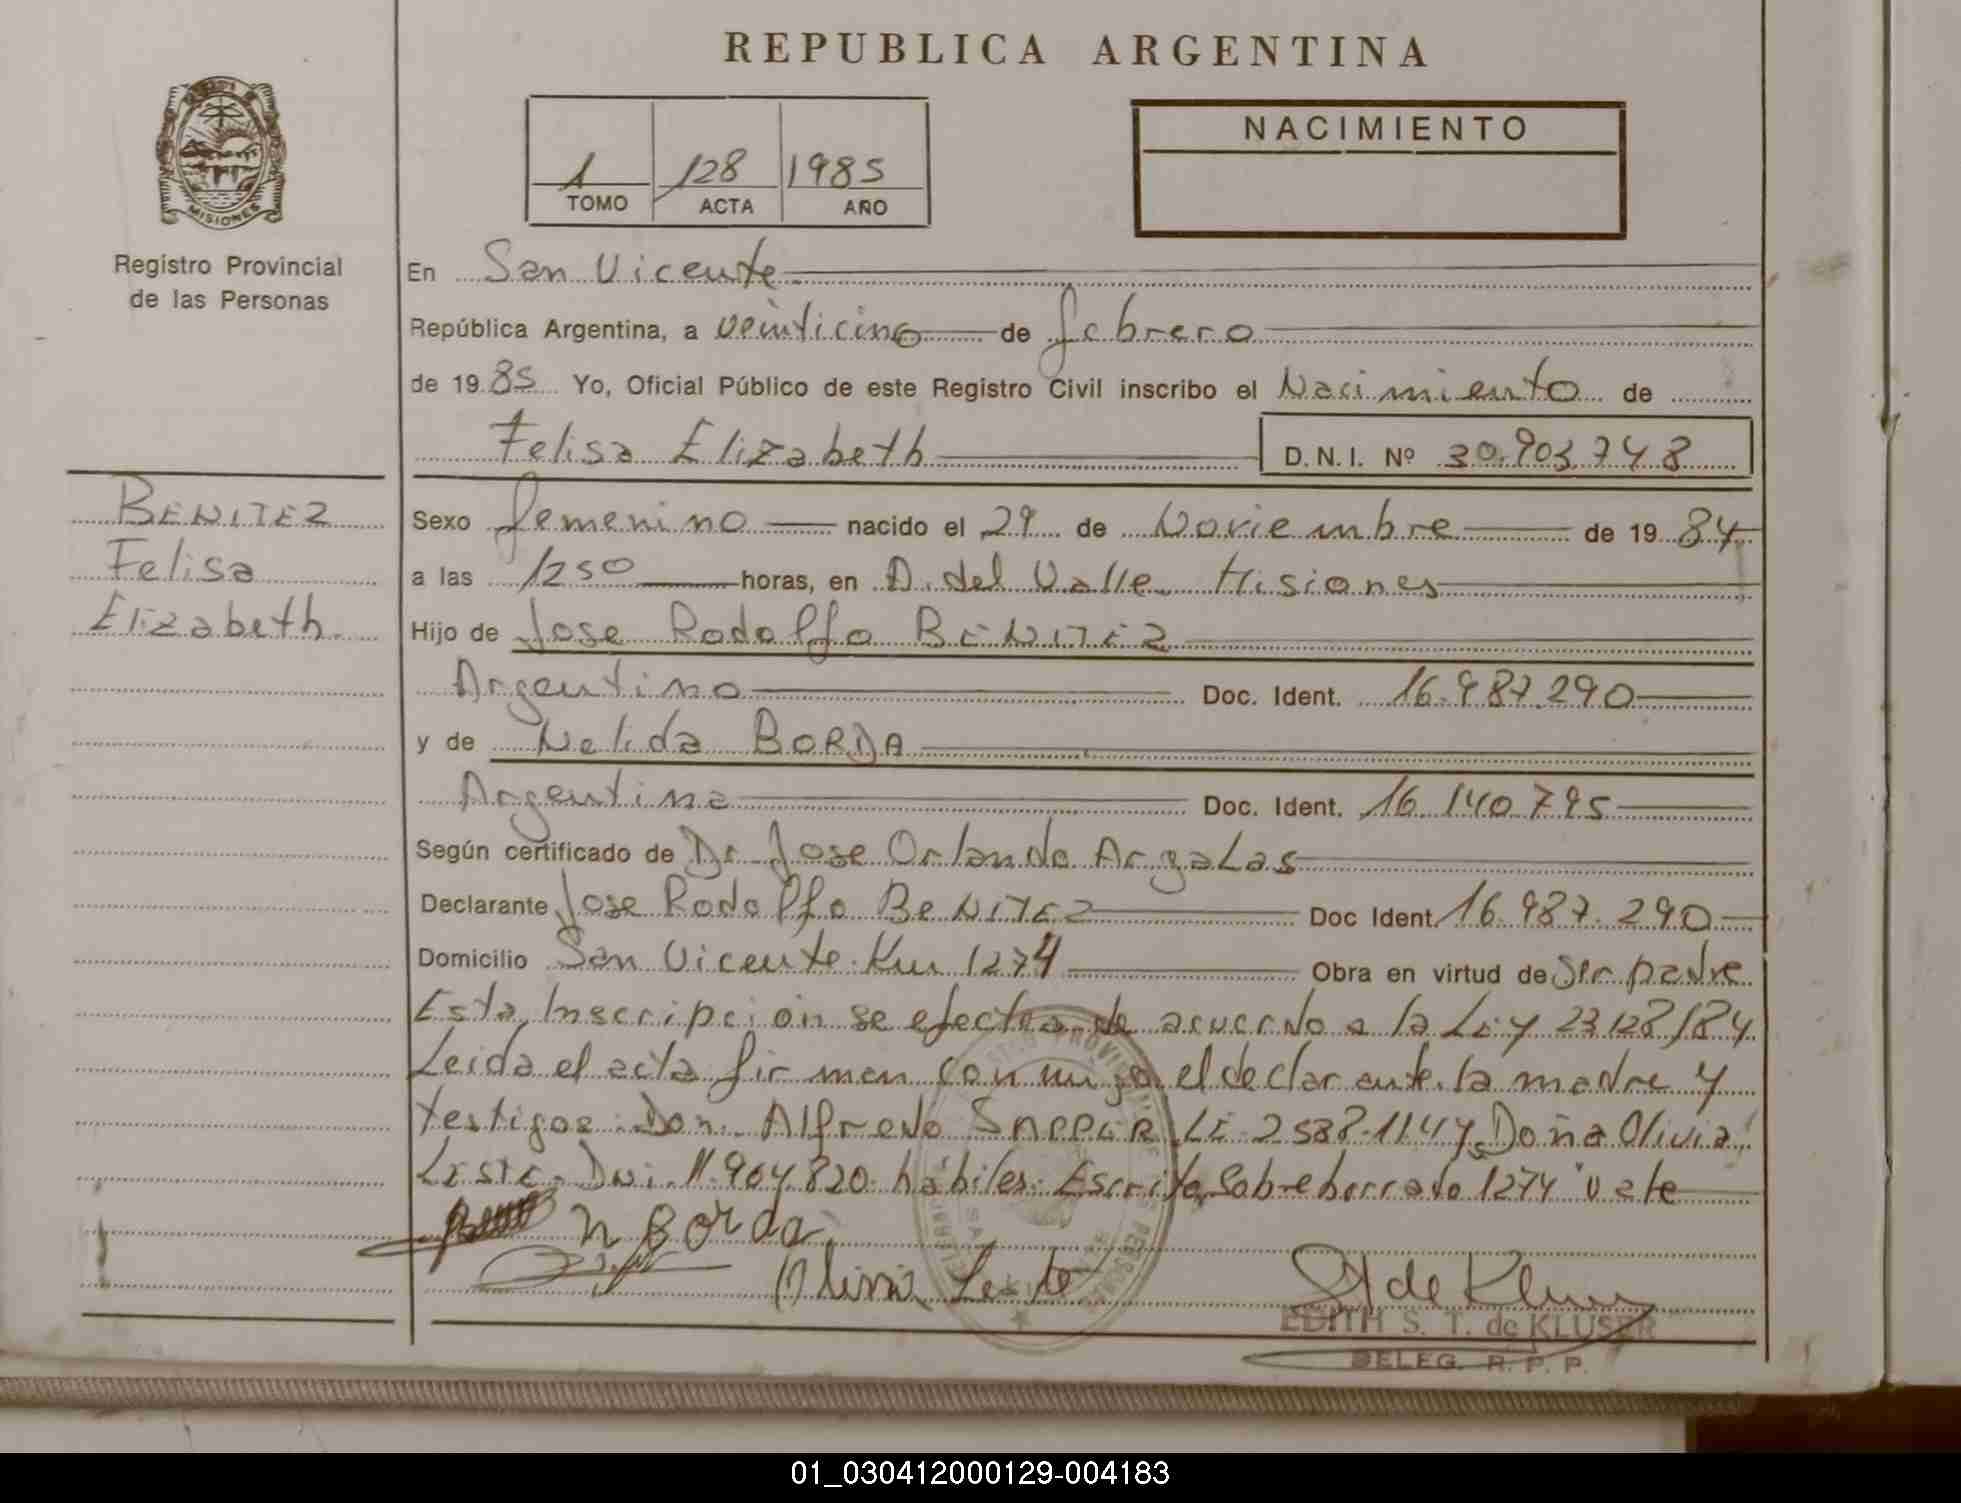 REPUBLICA ARGENTINA
MISIONES
Registro Provincial
de las Personas
1 128 1985
TOMO ACTA AÑO
NACIMIENTO
En San Vicente
República Argentina, a veinticinco de febrero
de 19 85 Yo, Oficial Público de este Registro Civil inscribo el Nacimiento de
Felisa Elizabeth D.N.I. Nº 30.903.748
BENITEZ
Felisa
Elizabeth.
Sexo femenino nacido el 29 de Noviembre de 19 84
a las 1250 horas, en A. del Valle Misiones
Hijo de Jose Rodolfo BENITEZ
Argentino Doc. Ident. 16.987.290
y de Nelida BORDA
Argentina Doc. Ident. 16.140.795
Según certificado de Dr. Jose Orlando
Declarante Jose Rodolfo BENITEZ Doc Ident. 16.987.290
Domicilio San Vicente Km 1274 Obra en virtud de Ser padre
Esta Inscripción se efectua de acuerdo a la Ley 23128/84
Leida el acta firman conmigo el declarante la madre y
testigos: Don. Alfredo LE. 2588.114 y Doña Olivia
Dni. 11.904.820. hábiles. Escrito Sobreborrado 1274 "vale
N Borda
Olivia
EDITH S. T. de KLUSER
DELEG. R. P. P.
01_030412000129-004183